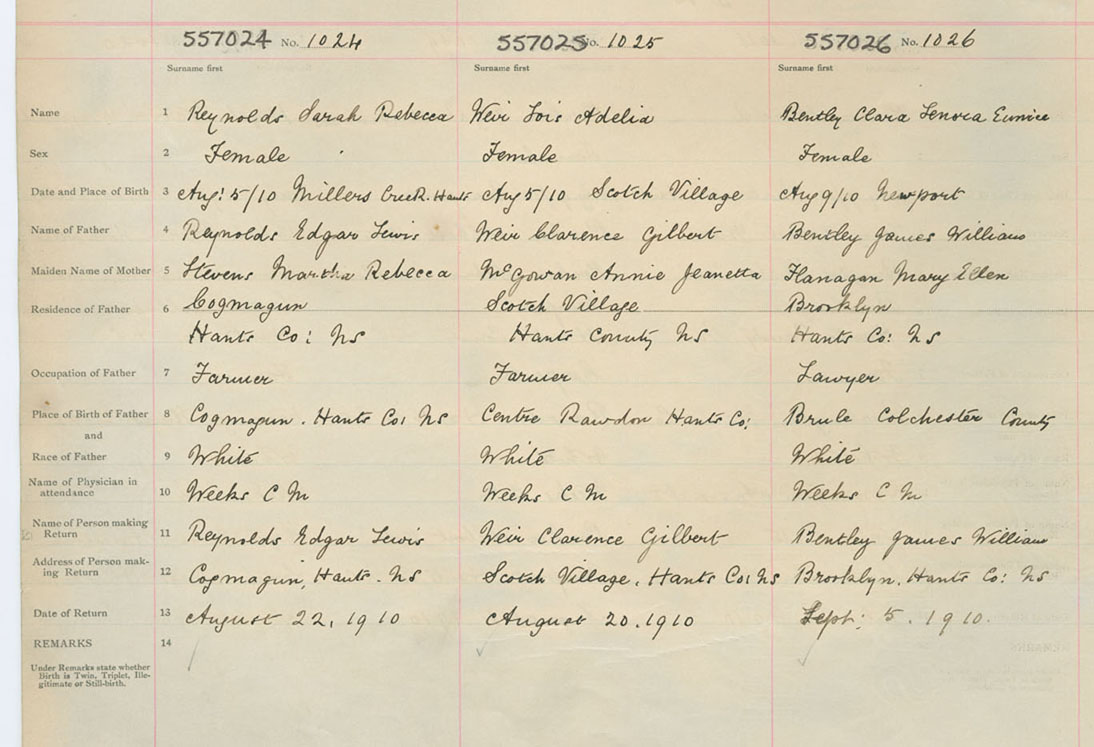 557024 No. 1024 557025 No. 1025 557026 No. 1026
Surname first Surname first Surname first
Name 1 Reynolds Sarah Rebecca Weir Lois Adelia Bentley Clara Lenora Eunice
Sex 2 Female Female Female
Date and Place of Birth 3 Aug: 5/10 Millers Creek. Hants Aug 5/10 Scotch Village Aug 9/10 Newport
Name of Father 4 Reynolds Edgar Lewis Weir Clarence Gilbert Bentley James William
Maiden Name of Mother 5 Stevens Martha Rebecca McGowan Annie Jeanetta Flanagan Mary Ellen
Residence of Father 6 Cogmagun Scotch Village Brooklyn
Hants Co: NS Hants County NS Hants Co: NS
Occupation of Father 7 Farmer Farmer Lawyer
Place of Birth of Father 8 Cogmagun. Hants Co: NS Centre Rawdon Hants Co: Brule Colchester County
and
Race of Father 9 White White White
Name of Physician in
attendance 10 Weeks C M Weeks C M Weeks C M
Name of Person making
Return 11 Reynolds Edgar Lewis Weir Clarence Gilbert Bentley James William
Address of Person mak-
ing Return 12 Cogmagun, Hants. NS Scotch Village, Hants Co: NS Brooklyn, Hants Co: NS
Date of Return 13 August 22, 1910 August 20. 1910 Sept: 5. 1910.
REMARKS 14
Under Remarks state whether
Birth is Twin, Triplet, Ille-
gitimate or Still-birth.